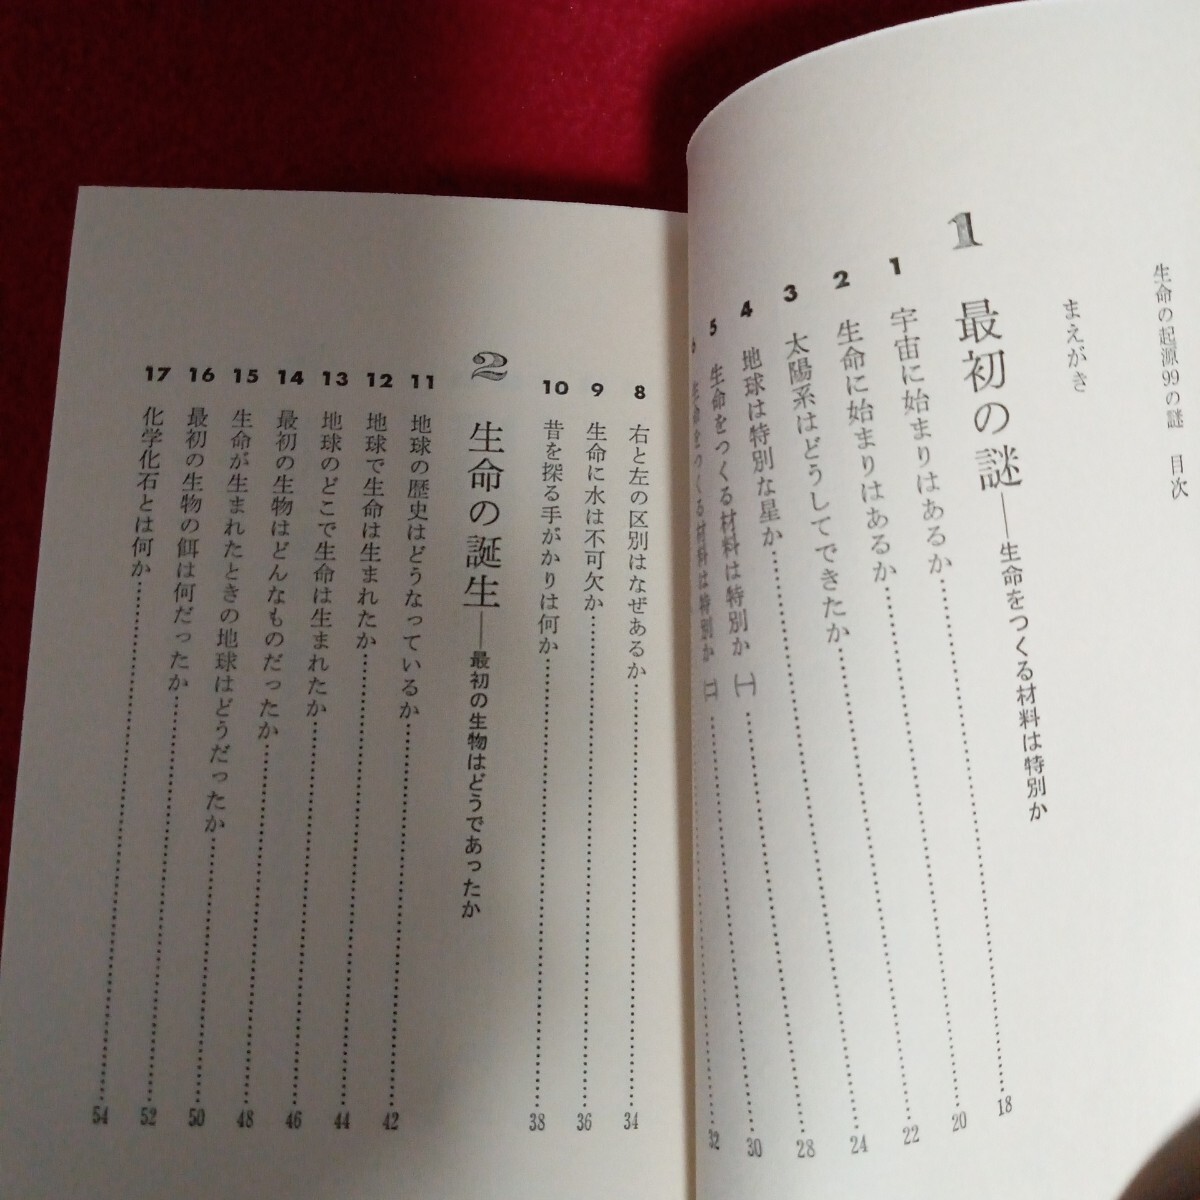 生命の起源99の謎　目次
まえがき
1 最初の謎——生命をつくる材料は特別か
1 宇宙に始まりはあるか……18
2 生命に始まりはあるか……20
3 太陽系はどうしてできたか……22
4 地球は特別な星か……24
5 生命をつくる材料は特別か (一)……28
6 生命をつくる材料は特別か (二)……30
32
8 右と左の区別はなぜあるか……34
9 生命に水は不可欠か……36
10 昔を探る手がかりは何か……38
2 生命の誕生——最初の生物はどうであったか
11 地球の歴史はどうなっているか……42
12 地球で生命は生まれたか……44
13 地球のどこで生命は生まれたか……46
14 最初の生物はどんなものだったか……48
15 生命が生まれたときの地球はどうだったか……50
16 最初の生物の餌は何だったか……52
17 化学化石とは何か……54